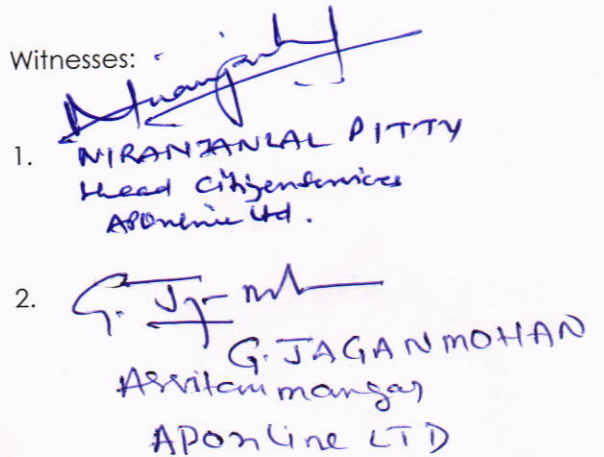 Witnesses:
1. NIRANJANLAL PITTY
Head Citizenservices
APOnline Ltd.
2. G. Jg-
G. JAGANMOHAN
Assitan manger
APOnline LTD